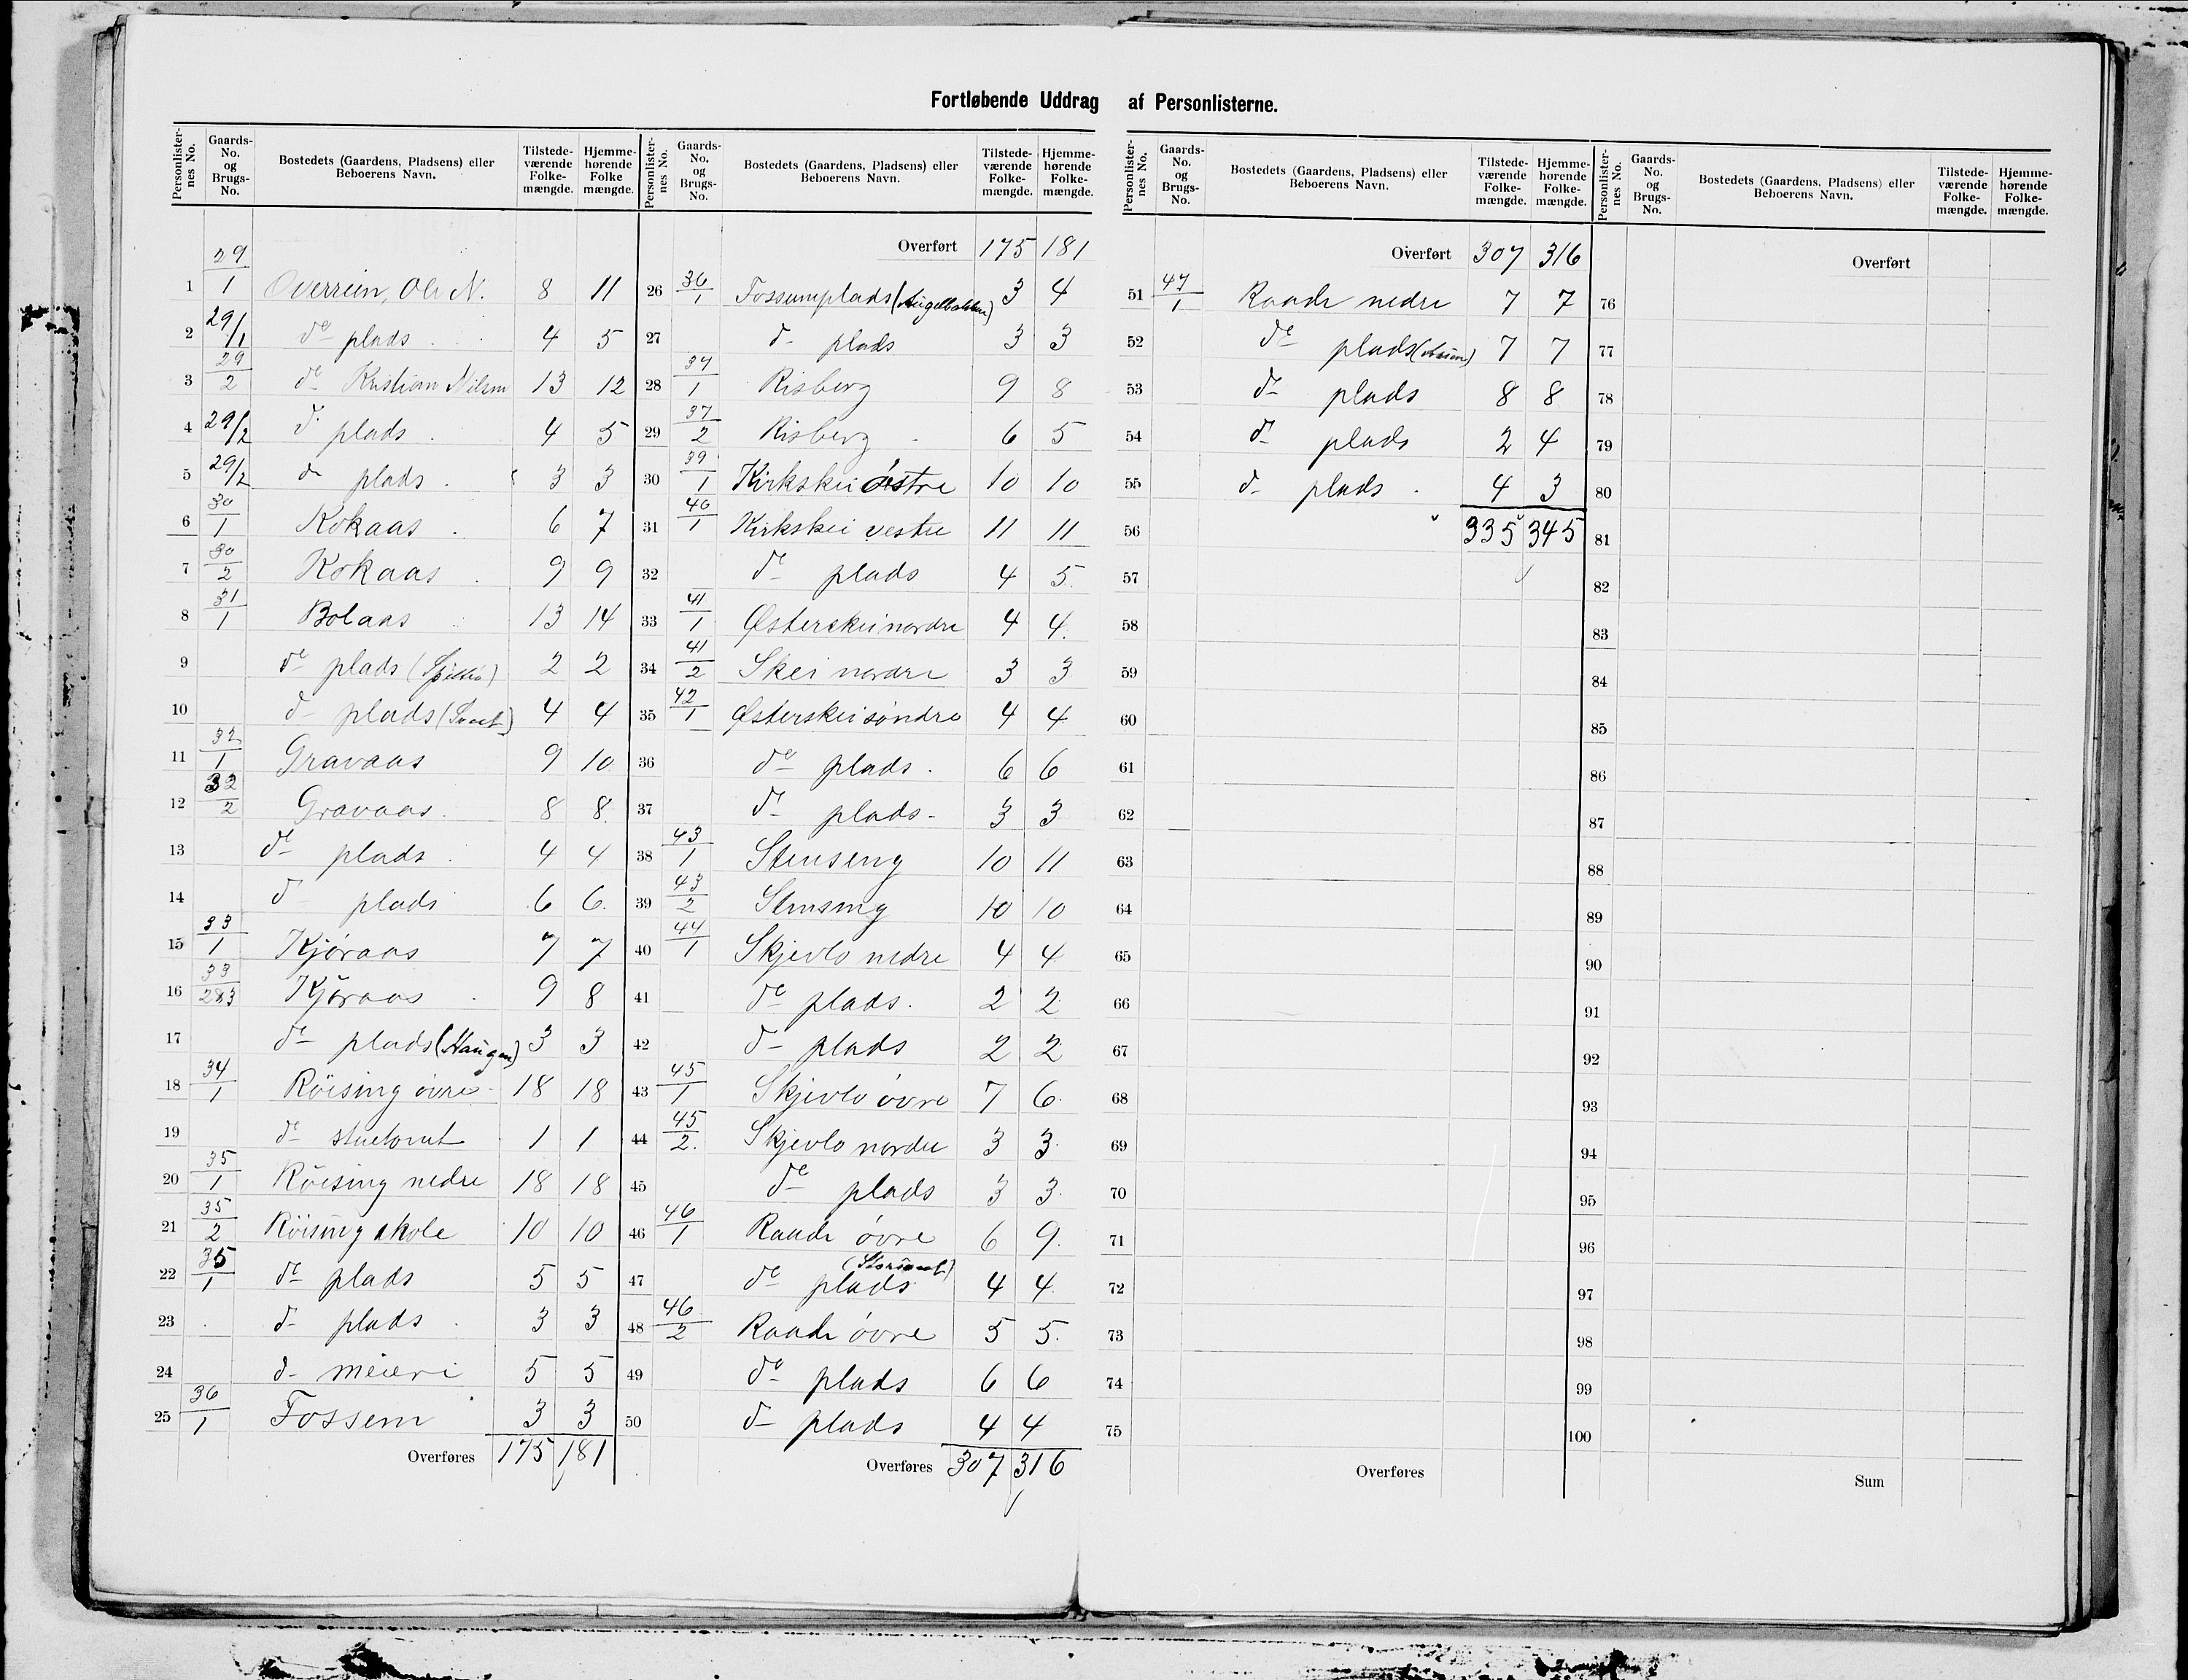 Fortløbende Uddrag af Personlisterne.
Personlisternes No. Gaards-No. og Brugs-No. Bostedets (Gaardens, Pladsens) eller Beboerens Navn. Tilstedeværende Folkemængde. Hjemmehørende Folkemængde.
1 29/1 Overrein, Ole N. 8 11
2 29/1 do plads 4 5
3 29/2 do Kristian Nilsen 13 12
4 29/2 do plads 4 5
5 29/2 do plads 3 3
6 30/1 Kokaas 6 7
7 30/2 Kokaas 9 9
8 31/1 Bolaas 13 14
9 do plads 2 2
10 do plads 4 4
11 32/1 Gravaas 9 10
12 32/2 Gravaas 8 8
13 do plads 4 4
14 do plads 6 6
15 33/1 Kjøraas 7 7
16 33/2&3 Kjøraas 9 8
17 do plads (Haugen) 3 3
18 34/1 Röising övre 18 18
19 do 1 1
20 35/1 Röising nedre 18 18
21 35/2 Röising skole 10 10
22 35/1 do plads 5 5
23 do plads 3 3
24 do meieri 5 5
25 36/1 Fossem 3 3
Overføres 175 181
Personlisternes No. Gaards-No. og Brugs-No. Bostedets (Gaardens, Pladsens) eller Beboerens Navn. Tilstedeværende Folkemængde. Hjemmehørende Folkemængde.
Overført 175 181
26 36/1 Fossumplads 3 4
27 do plads 3 3
28 37/1 Risberg 9 8
29 37/2 Risberg 6 5
30 39/1 Kirkskei østre 10 10
31 40/1 Kirkskei vestre 11 11
32 do plads 4 5
33 41/1 Østerskei nordre 4 4
34 41/2 Skei nordre 3 3
35 42/1 Østerskei søndre 4 4
36 do plads 6 6
37 do plads 3 3
38 43/1 Stenseng 10 11
39 43/2 Stenseng 10 10
40 44/1 Skjevlo nedre 4 4
41 do plads 2 2
42 do plads 2 2
43 45/1 Skjevlo övre 7 6
44 45/2 Skjevlo nordre 3 3
45 do plads 3 3
46 46/1 Raade övre 6 9
47 do plads 4 4
48 46/2 Raade övre 5 5
49 do plads 6 6
50 do plads 4 4
Overføres 307 316
Personlisternes No. Gaards-No. og Brugs-No. Bostedets (Gaardens, Pladsens) eller Beboerens Navn. Tilstedeværende Folkemængde. Hjemmehørende Folkemængde.
Overført 307 316
51 47/1 Raade nedre 7 7
52 do plads 7 7
53 do plads 8 8
54 do plads 2 4
55 do plads 4 3
56 335 345
57
58
59
60
61
62
63
64
65
66
67
68
69
70
71
72
73
74
75
Overføres
Personlisternes No. Gaards-No. og Brugs-No. Bostedets (Gaardens, Pladsens) eller Beboerens Navn. Tilstedeværende Folkemængde. Hjemmehørende Folkemængde.
Overført
76
77
78
79
80
81
82
83
84
85
86
87
88
89
90
91
92
93
94
95
96
97
98
99
100
Sum